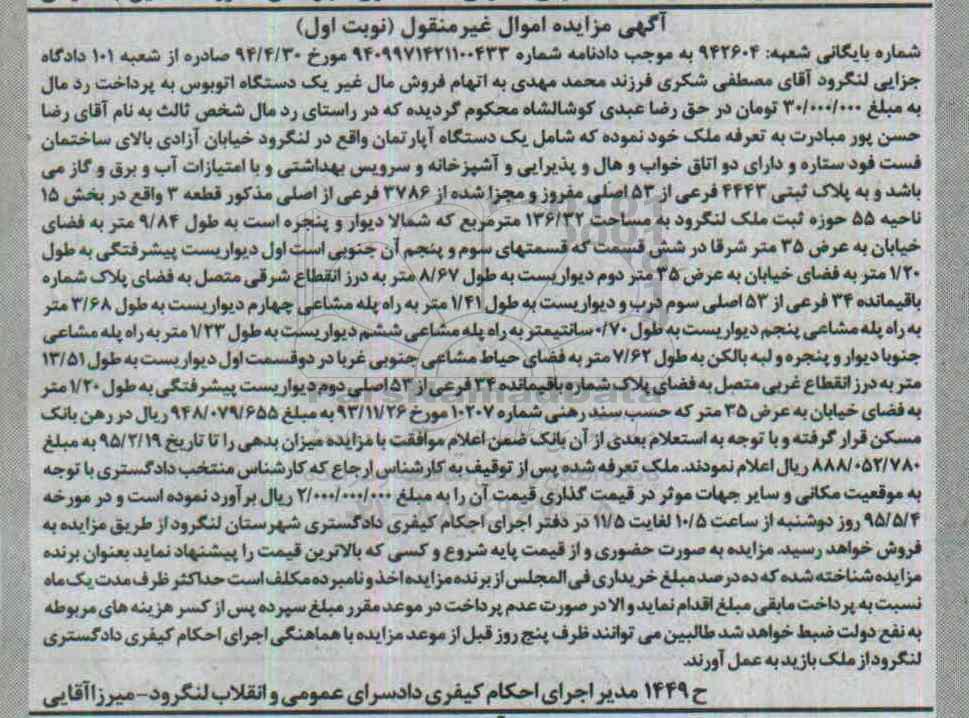 آگهی مزایده اموال غیر منقول (نوبت اول)
شماره بایگانی شعبه: ۹۴۲۶۰۴ به موجب دادنامه شماره ۹۴۰۹۹۷۱۴۲۱۱۰۰۴۳۳ مورخ ۹۴/۴/۳۰ صادره از شعبه ۱۰۱ دادگاه
جزایی لنگرود آقای مصطفی شکری فرزند محمد مهدی به اتهام فروش مال غیر یک دستگاه اتوبوس به پرداخت رد مال
به مبلغ ۳۰/۰۰۰/۰۰۰ تومان در حق رضا عبدی کوشالشاه محکوم گردیده که در راستای رد مال شخص ثالث به نام آقای رضا
حسن پور مبادرت به تعرفه ملک خود نموده که شامل یک دستگاه آپارتمان واقع در لنگرود خیابان آزادی بالای ساختمان
فست فود ستاره و دارای دو اتاق خواب و هال و پذیرایی و آشپزخانه و سرویس بهداشتی و با امتیازات آب و برق و گاز می
باشد و به پلاک ثبتی ۴۴۴۳ فرعی از ۵۳ اصلی مفروز و مجزا شده از ۳۷۸۶ فرعی از اصلی مذکور قطعه ۳ واقع در بخش ۱۵
ناحیه ۵۵ حوزه ثبت ملک لنگرود به مساحت ۱۳۶/۳۲ مترمربع که شمالا دیوار و پنجره است به طول ۹/۸۴ متر به فضای
خیابان به عرض ۳۵ متر شرقا در شش قسمت که قسمتهای سوم و پنجم آن جنوبی است اول دیواریست پیشرفتگی به طول
۱/۲۰ متر به فضای خیابان به عرض ۳۵ متر دوم دیواریست به طول ۸/۶۷ متر به درز انقطاع شرقی متصل به فضای پلاک شماره
باقیمانده ۳۴ فرعی از ۵۳ اصلی سوم درب و دیواریست به طول ۱/۴۱ متر به راه پله مشاعی چهارم دیواریست به طول ۳/۶۸ متر
به راه پله مشاعی پنجم دیواریست به طول ۰/۷۰ سانتیمتر به راه پله مشاعی ششم دیواریست به طول ۱/۲۳ متر به راه پله مشاعی
جنوبا دیوار و پنجره و لبه بالکن به طول ۷/۶۲ متر به فضای حیاط مشاعی جنوبی غربا در دوقسمت اول دیواریست به طول ۱۳/۵۱
متر به درز انقطاع غربی متصل به فضای پلاک شماره باقیمانده ۳۴ فرعی از ۵۳ اصلی دوم دیواریست پیشرفتگی به طول ۱/۲۰ متر
به فضای خیابان به عرض ۳۵ متر که حسب سند رهنی شماره ۱۰۲۰۷ مورخ ۹۳/۱۱/۲۶ به مبلغ ۹۴۸/۰۷۹/۶۵۵ ریال در رهن بانک
مسکن قرار گرفته و با توجه به استعلام بعدی از آن بانک ضمن اعلام موافقت با مزایده میزان بدهی را تا تاریخ ۹۵/۳/۱۹ به مبلغ
۸۸۸/۰۵۲/۷۸۰ ریال اعلام نمودند. ملک تعرفه شده پس از توقیف به کارشناس ارجاع که کارشناس منتخب دادگستری با توجه
به موقعیت مکانی و سایر جهات موثر در قیمت گذاری قیمت آن را به مبلغ ۲/۰۰۰/۰۰۰/۰۰۰ ریال برآورد نموده است و در مورخه
۹۵/۵/۴ روز دوشنبه از ساعت ۱۰/۵ لغایت ۱۱/۵ در دفتر اجرای احکام کیفری دادگستری شهرستان لنگرود از طریق مزایده به
فروش خواهد رسید. مزایده به صورت حضوری و از قیمت پایه شروع و کسی که بالاترین قیمت را پیشنهاد نماید بعنوان برنده
مزایده شناخته شده که ده درصد مبلغ خریداری فی المجلس از برنده مزایده اخذ و نامبرده مکلف است حداکثر ظرف مدت یک ماه
نسبت به پرداخت مابقی مبلغ اقدام نماید و الا در صورت عدم پرداخت در موعد مقرر مبلغ سپرده پس از کسر هزینه های مربوطه
به نفع دولت ضبط خواهد شد طالبین می توانند ظرف پنج روز قبل از موعد مزایده با هماهنگی اجرای احکام کیفری دادگستری
لنگرود از ملک بازدید به عمل آورند.
ح ۱۴۴۹ مدیر اجرای احکام کیفری دادسرای عمومی و انقلاب لنگرود-میرزاآقایی